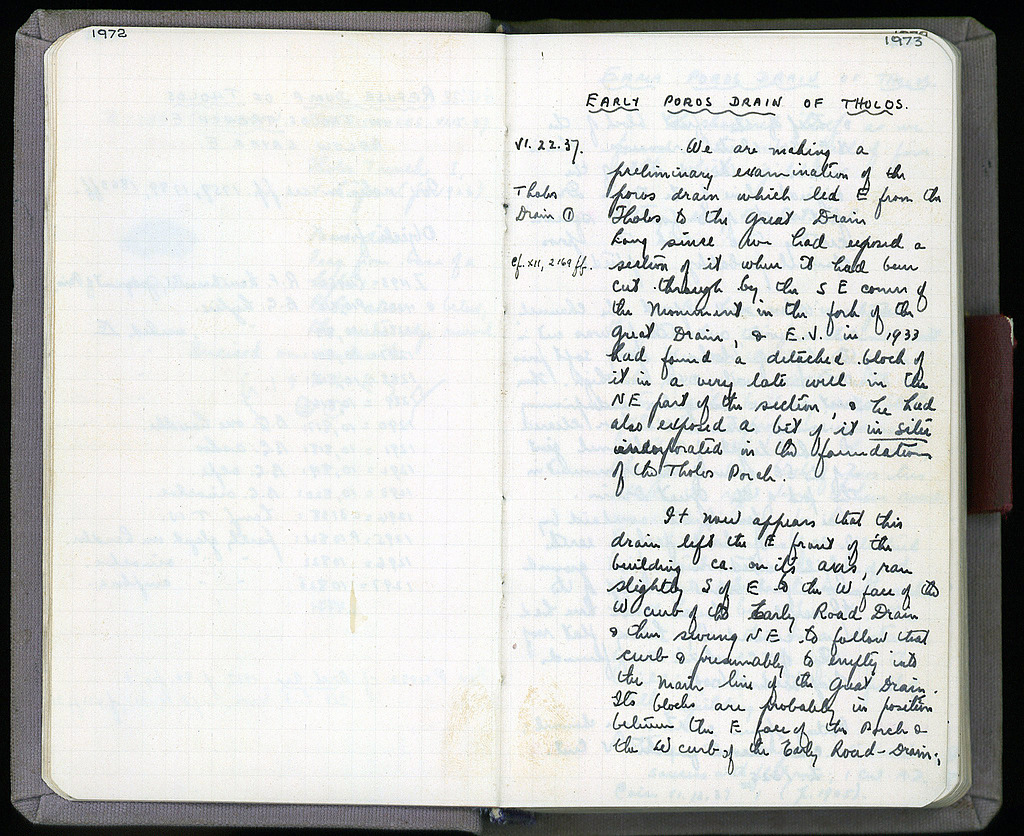 1972
1973
EARLY POROS DRAIN OF THOLOS.
VI. 22.37. We are making a
preliminary examination of the
Tholos poros drain which led E from the
Drain ① Tholos to the Great Drain
Long since we had exposed a
cf. XII, 2169 ff. section of it when it had been
cut through by the S E corner of
the Monument in the fork of the
Great Drain, & E.V. in 1933
had found a detached block of
it in a very late well in the
NE part of the section, & he had
also exposed a bit of it in situ
incorporated in the foundations
of the Tholos Porch.
It now appears that this
drain left the E front of the
building ca. on its axis, ran
slightly S of E to the W face of the
W curb of the Early Road Drain
& then swung NE to follow that
curb & presumably to empty into
the main line of the Great Drain.
Its blocks are probably in position
between the E face of the Porch &
the W curb of the Early Road-Drain,